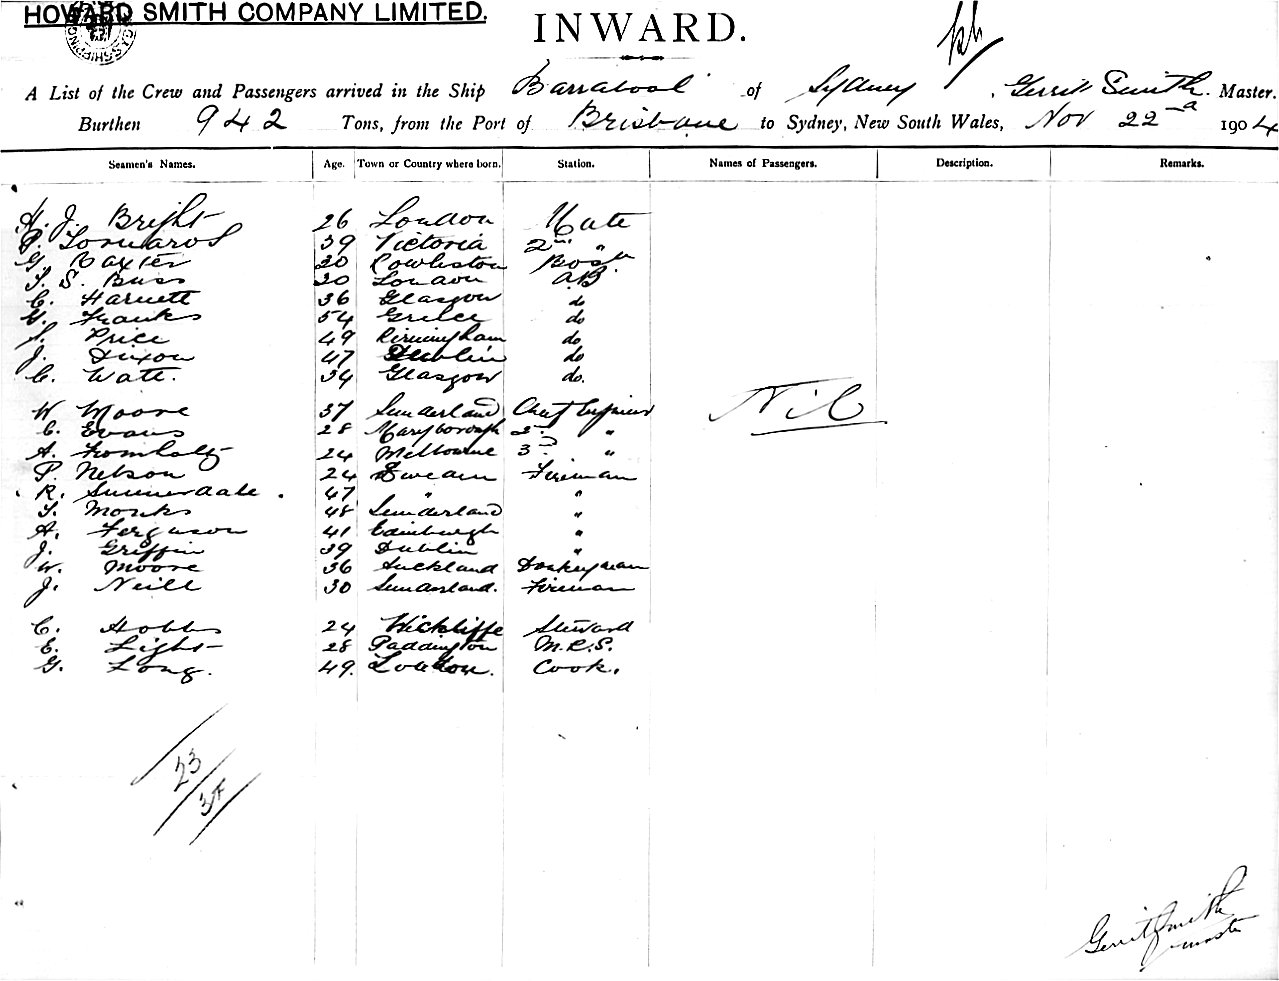 HOWARD SMITH COMPANY LIMITED.
INWARD.
A List of the Crew and Passengers arrived in the Ship Barrabool of Sydney, Gerrit Smith. Master.
Burthen 942 Tons, from the Port of Brisbane to Sydney, New South Wales, Nov 22nd 1904
Seamen's Names. Age. Town or Country where born. Station. Names of Passengers. Description. Remarks.
H. J. Bright 26 London Mate
P. 39 Victoria 2nd "
G. Baxter 30 Bosn
S. Buss 30 London AB
C. Harnett 36 Glasgow do
Franks 54 Greece do
S. Price 49 Birmingham do
J. Dixon 47 Dublin do
C. Watt. 34 Glasgow do.
W Moore 37 Sunderland Chief Engineer
C. Evans 28 Maryborough 2nd "
A. 24 Melbourne 3rd "
P. Nelson 24 Sweden Fireman
R. Sunnerdale. 47 " "
T. Monks 48 Sunderland "
A. Ferguson 41 Edinburgh "
J. Griffin 39 Dublin "
W. Moore 36 Auckland Donkeyman
J. Neill 30 Sunderland. Fireman
C. Hobbs 24 Wickliffe Steward
E. Light 28 Paddington M.R.S.
G. Long. 49. London. Cook.
Nil
23
Gerrit Smith
master